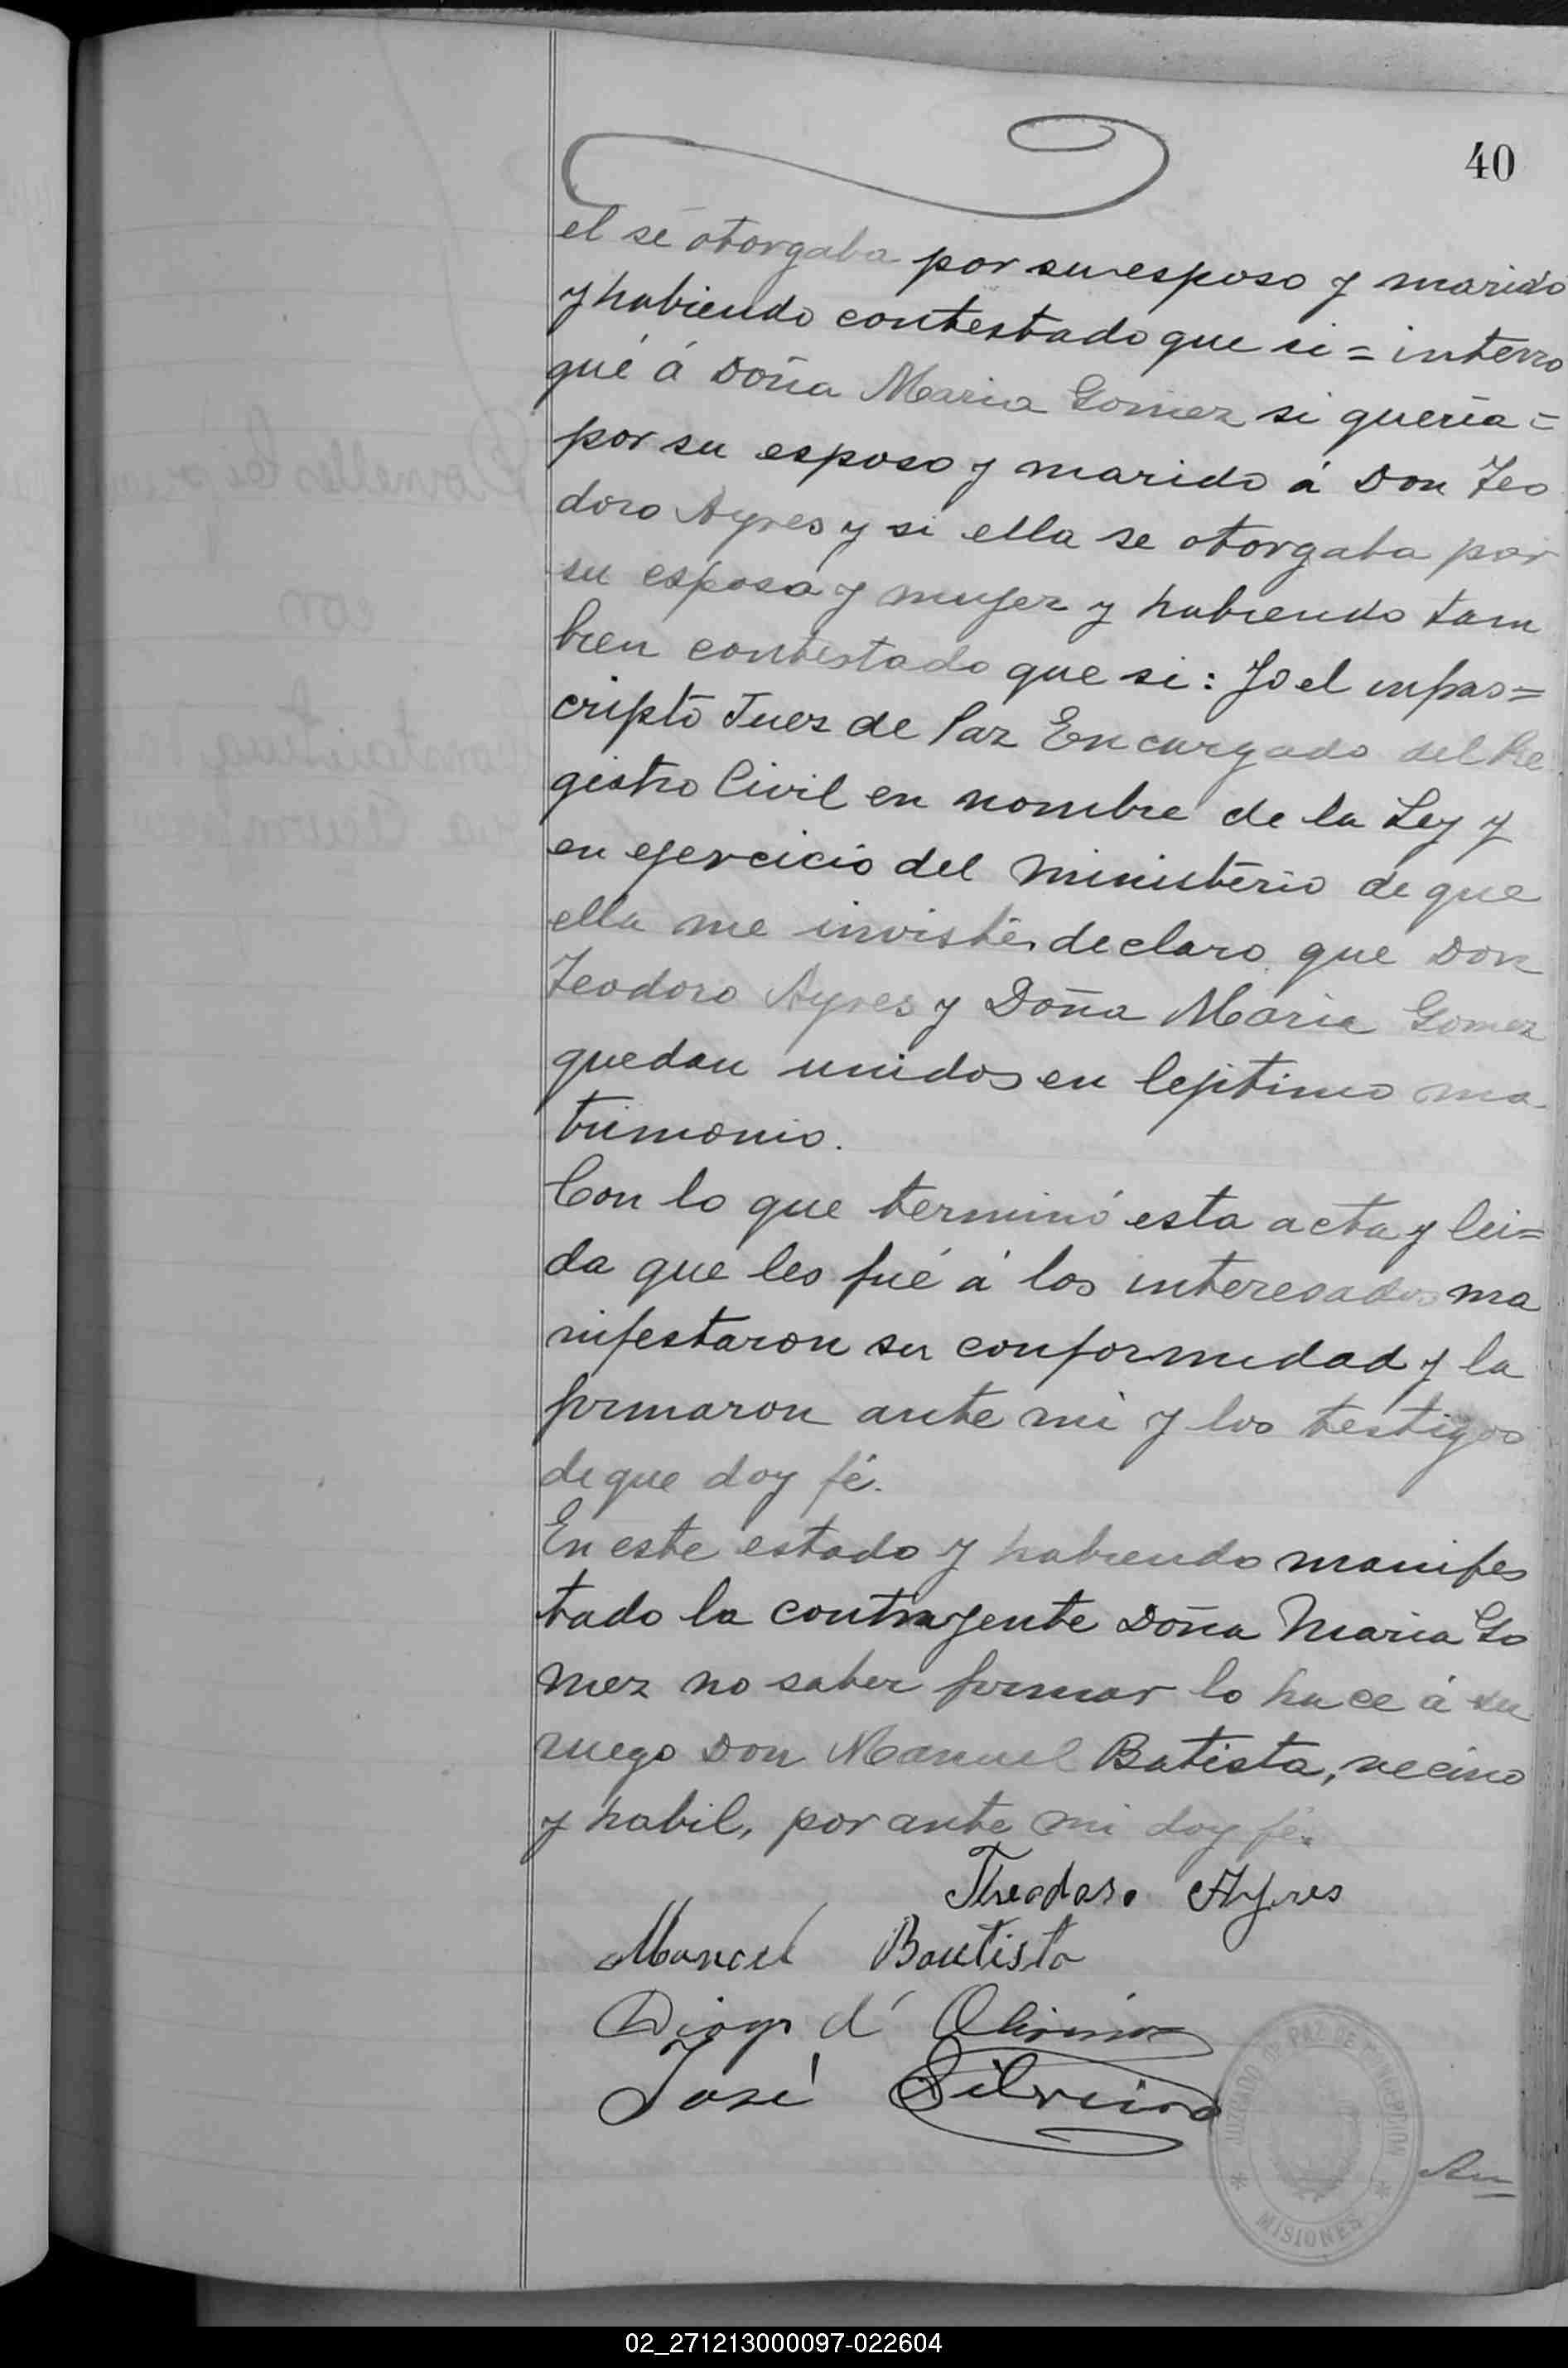 40
el se otorgaba por su esposo y marido
y habiendo contestado que si = interro
gué á Doña Maria Gomez si quería =
por su esposo y marido á Don Teo
doro Ayres y si ella se otorgaba por
su esposa y mujer y habiendo tam
bien contestado que si: Yo el infras=
cripto Juez de Paz Encargado del Re
gistro Civil en nombre de la Ley y
en ejercicio del ministerio de que
ella me inviste, declaro que Don
Teodoro Ayres y Doña Maria Gomez
quedan unidos en lejitimo ma
trimonio.
Con lo que terminó esta acta y lei=
da que les fué á los interesados ma
nifestaron su conformidad y la
firmaron ante mi y los testigos
de que doy fé.
En este estado y habiendo manifes
tado la contrayente Doña Maria Go
mez no saber firmar lo hace á su
ruego Don Manuel Batista, vecino
y habil, por ante mi doy fé.
Theodoro Ayres
Manuel Bautista
Diogo d'
José Silveira
JUZGADO DE PAZ DE CONCEPCION
* MISIONES *
02_271213000097-022604